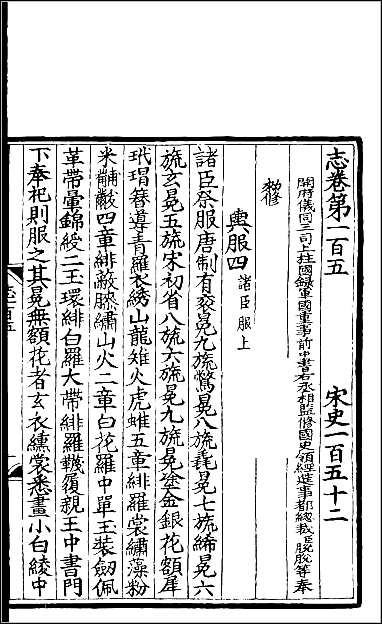 志卷第一百五　宋史一百五十二
開府儀同三司上柱國録軍國重事前中書右丞相監修國史領經筵事都總裁臣脫脫等奉
勑修
輿服四 諸臣服上
諸臣祭服唐制有袞冕九旒鷩冕八旒毳冕七旒絺冕六
旒玄冕五旒宋初省八旒六旒冕九旒冕塗金銀花額犀
玳瑁簪導青羅衣繡山龍雉火虎蜼五章緋羅裳繡藻粉
米黼黻四章緋蔽膝繡山火二章白花羅中單玉裝劔佩
革帶暈錦綬二玉環緋白羅大帶緋羅韈履親王中書門
下奉祀則服之其冕無額花者玄衣纁裳悉畫小白綾中
志一百五